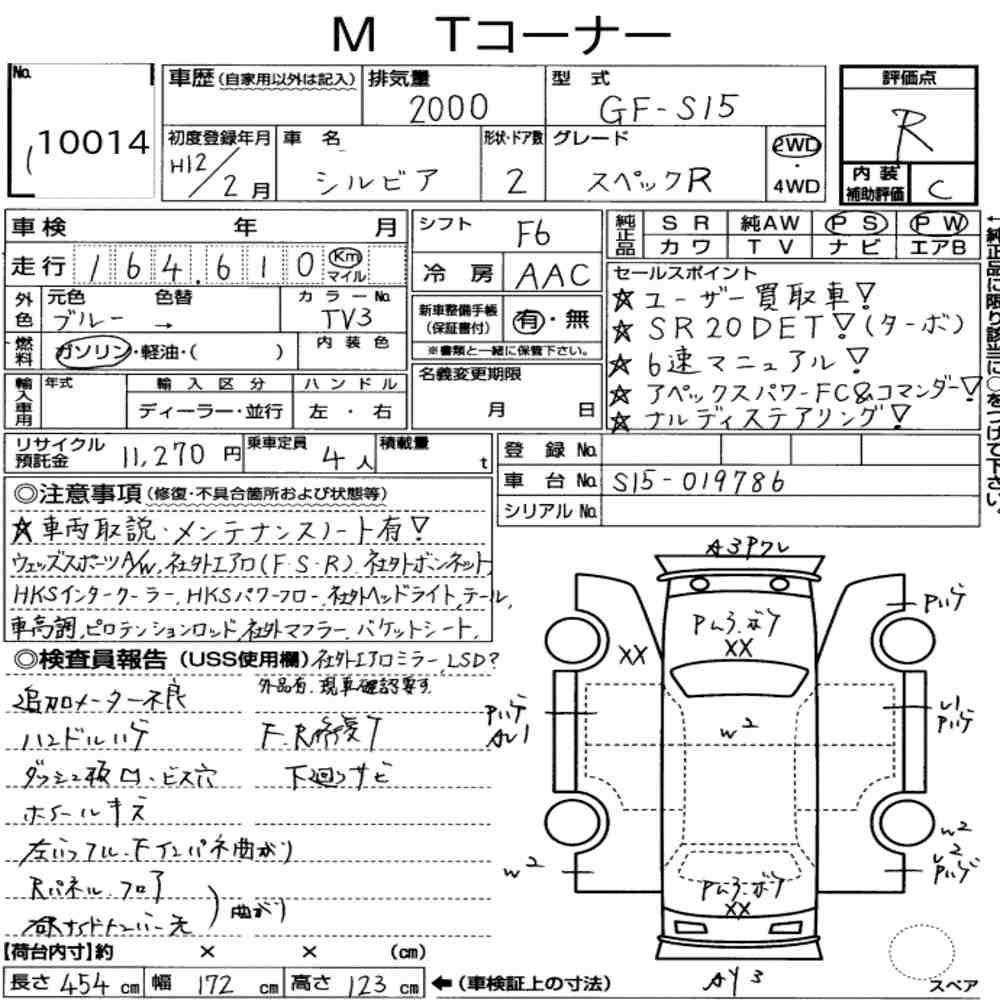 M Tコーナー
No.
10014
車歴(自家用以外は記入)
排気量
2000
型式
GF-S15
評価点
R
初度登録年月
H12/2月
車名
シルビア
形状・ドア数
2
グレード
スペックR
2WD
・
4WD
内装
補助評価
C
車検 年 月
シフト
F6
純正品
SR 純AW PS PW
カワ TV ナビ エアB
走行 164,610 Km
マイル
冷房 AAC
セールスポイント
☆ユーザー買取車!
☆SR20DET!(ターボ)
☆6速マニュアル!
☆アペックスパワーFC&コマンダー!
☆ナルディステアリング!
←純正品に限り該当に○をつけて下さい。
外色
元色 色替
ブルー →
カラーNo.
TV3
新車整備手帳
(保証書付)
有・無
※書類と一緒に保管下さい。
燃料
ガソリン・軽油・( )
内装色
名義変更期限
月 日
輸入車用
年式
輸入区分
ディーラー・並行
ハンドル
左・右
リサイクル
預託金
11,270円
乗車定員
4人
積載量
t
登録No.
車台No. S15-019786
シリアルNo.
◎注意事項(修復・不具合箇所および状態等)
☆車両取説・メンテナンスノート有!
ウェッズスポーツA/W,社外エアロ(F・S・R),社外ボンネット,
HKSインタークーラー,HKSパワーフロー,社外ヘッドライト,テール,
車高調,ピロテンションロッド,社外マフラー,バケットシート,
◎検査員報告(USS使用欄)
社外エアロミラー,LSD?
外品有,現車確認要す
追加メーター不良
ハンドルハゲ
F.R修復ケ
ダッシュ板ロ・ビス穴
下廻りサビ
ホイールキズ
左インフル.Fインパネ曲がり
Rパネル.フロア
曲がり
A3Pワレ
XX
XX
Pハゲ
Pハゲ
AU1
W2
U1
Pハゲ
W2
U2
Pハゲ
W2
XX
AY3
スペア
【荷台内寸】約 × × (cm)
長さ 454 cm 幅 172 cm 高さ 123 cm ←(車検証上の寸法)